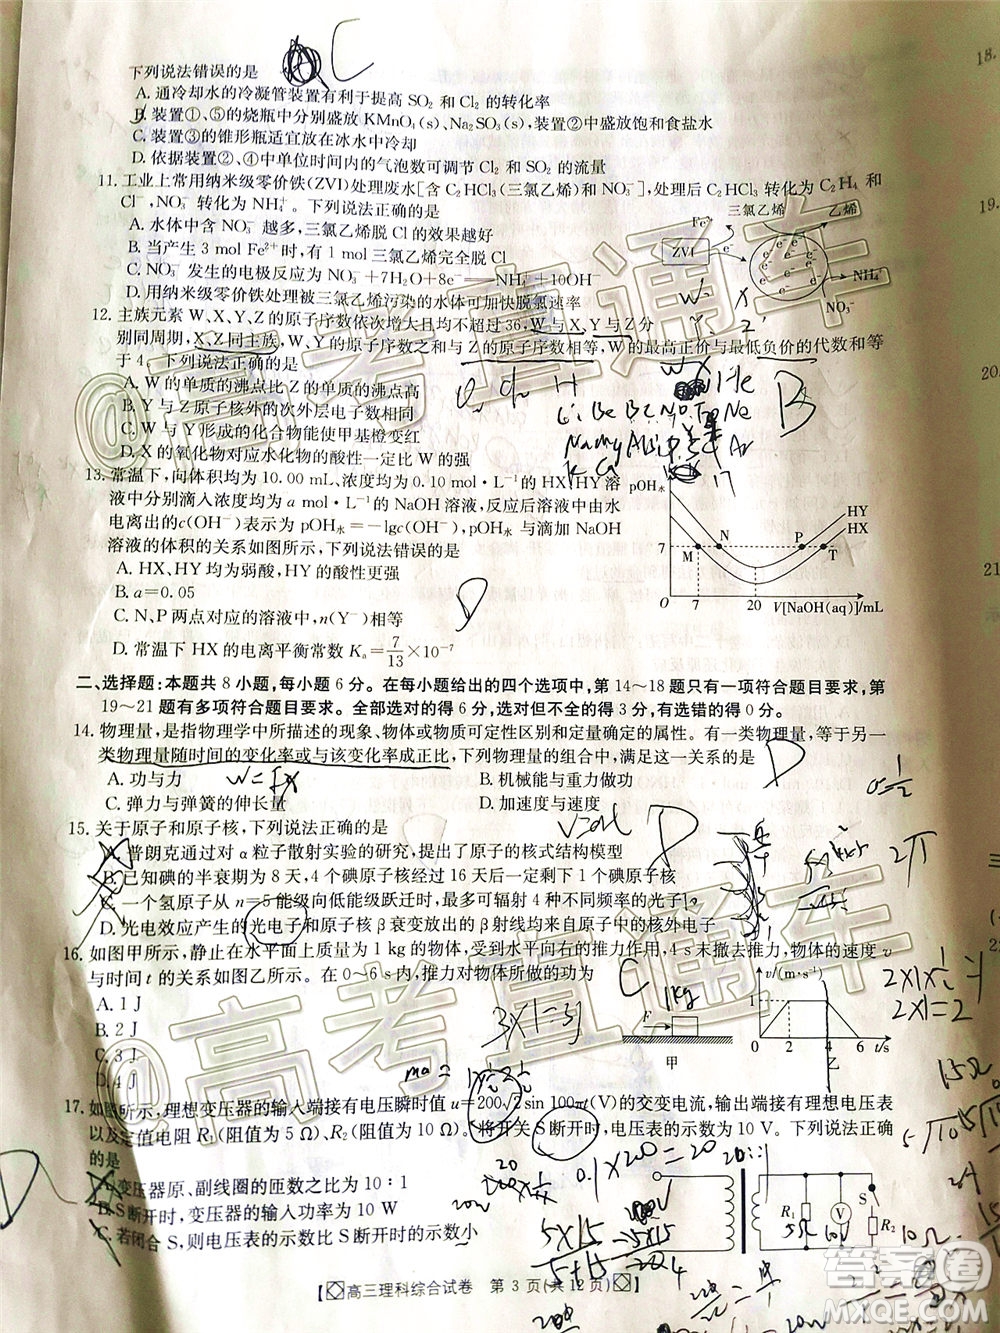 下列说法错误的是
A. 通冷却水的冷凝管装置有利于提高 SO₂ 和 Cl₂ 的转化率
B. 装置①、⑤的烧瓶中分别盛放 KMnO₄(s)、Na₂SO₃(s),装置②中盛放饱和食盐水
C. 装置③的锥形瓶适宜放在冰水中冷却
D. 依据装置②、④中单位时间内的气泡数可调节 Cl₂ 和 SO₂ 的流量
11. 工业上常用纳米级零价铁(ZVI)处理废水[含 C₂HCl₃(三氯乙烯)和 NO₃⁻],处理后 C₂HCl₃ 转化为 C₂H₄ 和
Cl⁻,NO₃⁻ 转化为 NH₄⁺。下列说法正确的是
A. 水体中含 NO₃⁻ 时,三氯乙烯脱 Cl 的效果越好
B. 当产生 3 mol Fe²⁺时,有 1 mol 三氯乙烯完全脱 Cl
C. NO₃⁻ 发生的电极反应为 NO₃⁻+7H₂O+8e⁻══NH₄⁺+10OH⁻
D. 用纳米级零价铁处理被三氯乙烯污染的水体可加快脱氯速率
Fe²⁺ 三氯乙烯 乙烯
ZVI e⁻ e⁻ e⁻ e⁻ e⁻ NH₄⁺
NO₃⁻
12. 主族元素 W、X、Y、Z 的原子序数依次增大且均不超过 36,W 与 X、Y 与 Z 分
别同周期,X、Z 同主族,W、Y 的原子序数之和与 Z 的原子序数相等,W 的最高正价与最低负价的代数和等
于 4。下列说法正确的是
A. W 的单质的沸点比 Z 的单质的沸点高
B. Y 与 Z 原子核外的次外层电子数相同
C. W 与 Y 形成的化合物能使甲基橙变红
D. X 的氧化物对应水化物的酸性一定比 W 的强
13. 常温下,向体积均为 10.00 mL、浓度均为 0.10 mol·L⁻¹ 的 HX、HY 溶
液中分别滴入浓度均为 a mol·L⁻¹ 的 NaOH 溶液,反应后溶液中由水
电离出的 c(OH⁻)表示为 pOH水=-lgc(OH⁻)水,pOH水 与滴加 NaOH
溶液的体积的关系如图所示,下列说法错误的是
A. HX、HY 均为弱酸,HY 的酸性更强
B. a=0.05
C. N、P 两点对应的溶液中,n(Y⁻)相等
D. 常温下 HX 的电离平衡常数 Kₐ=7/13×10⁻⁷
pOH水
HY
HX
7 M N P T
0 7 20 V[NaOH(aq)]/mL
二、选择题:本题共 8 小题,每小题 6 分。在每小题给出的四个选项中,第 14～18 题只有一项符合题目要求,第
19～21 题有多项符合题目要求。全部选对的得 6 分,选对但不全的得 3 分,有选错的得 0 分。
14. 物理量,是指物理学中所描述的现象、物体或物质可定性区别和定量确定的属性。有一类物理量,等于另一
类物理量随时间的变化率或与该变化率成正比,下列物理量的组合中,满足这一关系的是
A. 功与力 B. 机械能与重力做功
C. 弹力与弹簧的伸长量 D. 加速度与速度
15. 关于原子和原子核,下列说法正确的是
A. 普朗克通过对 α 粒子散射实验的研究,提出了原子的核式结构模型
B. 已知碘的半衰期为 8 天,4 个碘原子核经 16 天后一定剩下 1 个碘原子核
C. 一个氢原子从 n=5 能级向低能级跃迁时,最多可辐射 4 种不同频率的光子
D. 光电效应产生的光电子和原子核 β 衰变放出的 β 射线均来自原子中的核外电子
16. 如图甲所示,静止在水平面上质量为 1 kg 的物体,受到水平向右的推力作用,4 s 末撤去推力,物体的速度 v
与时间 t 的关系如图乙所示。在 0～6 s 内,推力对物体所做的功为
A. 1 J
B. 2 J
C. 3 J
D. 4 J
F
甲
v/(m·s⁻¹)
1
0 2 4 6 t/s
乙
17. 如图所示,理想变压器的输入端接有电压瞬时值 u=200√2sin 100πt(V)的交变电流,输出端接有理想电压表
以及定值电阻 R₁(阻值为 5 Ω)、R₂(阻值为 10 Ω)。将开关 S 断开时,电压表的示数为 10 V。下列说法正确
的是
A. 变压器原、副线圈的匝数之比为 10∶1
B. S 断开时,变压器的输入功率为 10 W
C. 若闭合 S,则电压表的示数比 S 断开时的示数小
R₁ V S R₂
高三理科综合试卷 第 3 页(共 12 页)
@高考直通车
答案圈
MXQE.COM